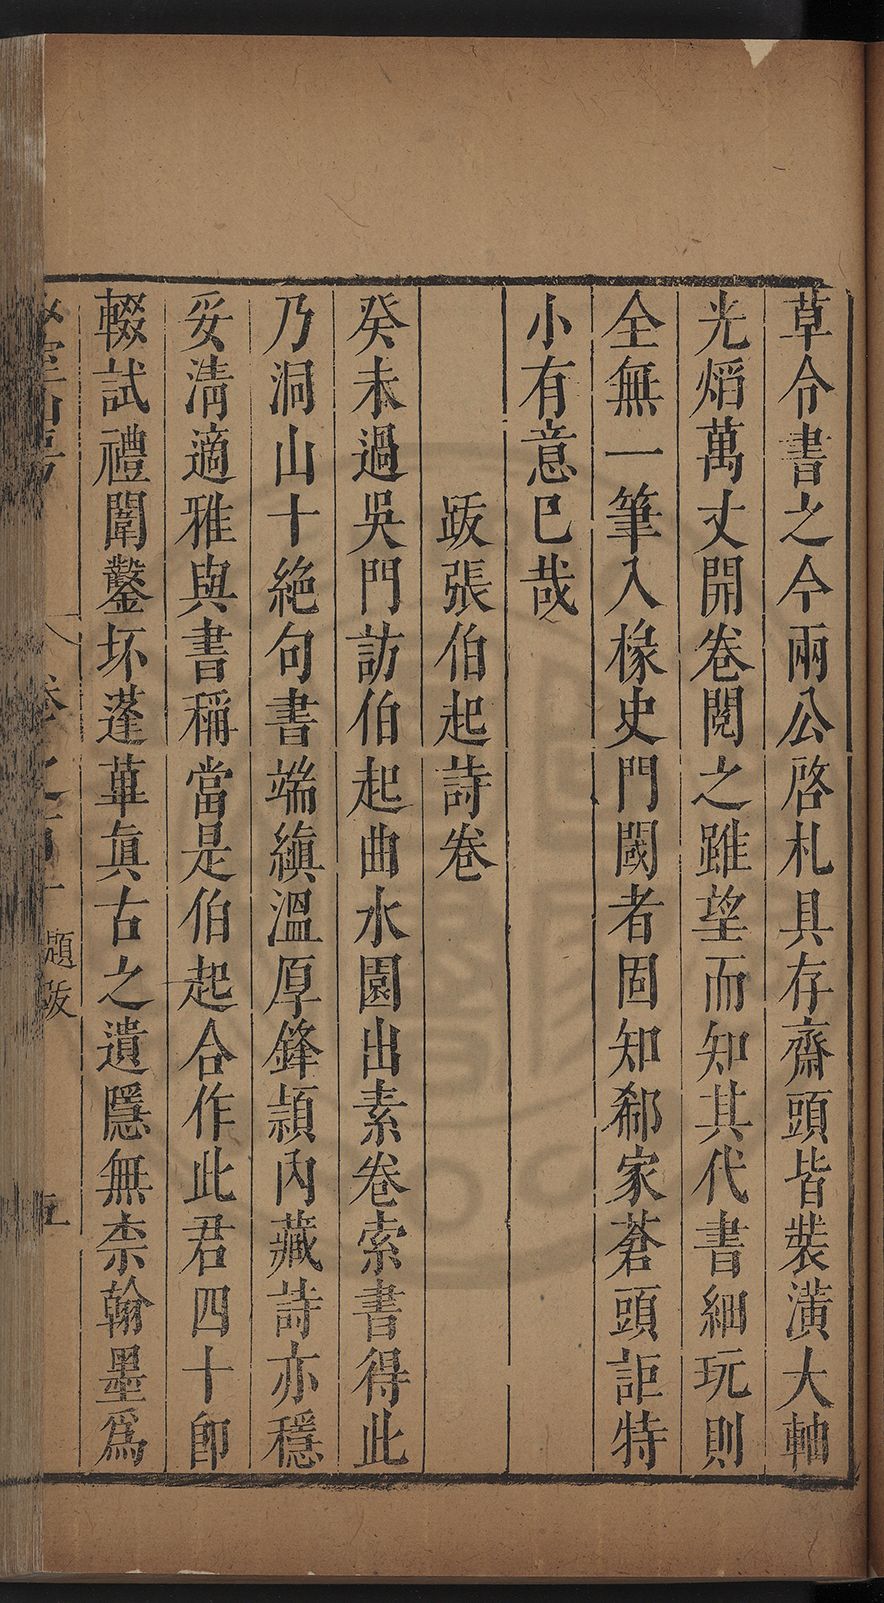 草令書之今兩公啓札具存齋頭皆裝潢大軸
光焰萬丈開卷閱之雖望而知其代書細玩則
全無一筆入椽史門閾者固知郗家蒼頭詎特
小有意已哉
跋張伯起詩卷
癸未過吳門訪伯起曲水園出素卷索書得此
乃洞山十絶句書端縝溫厚鋒頴內藏詩亦穩
妥淸適雅與書稱當是伯起合作此君四十卽
輟試禮闈鑿坏蓬蓽眞古之遺隱無柰翰墨爲
卷之
題跋
五